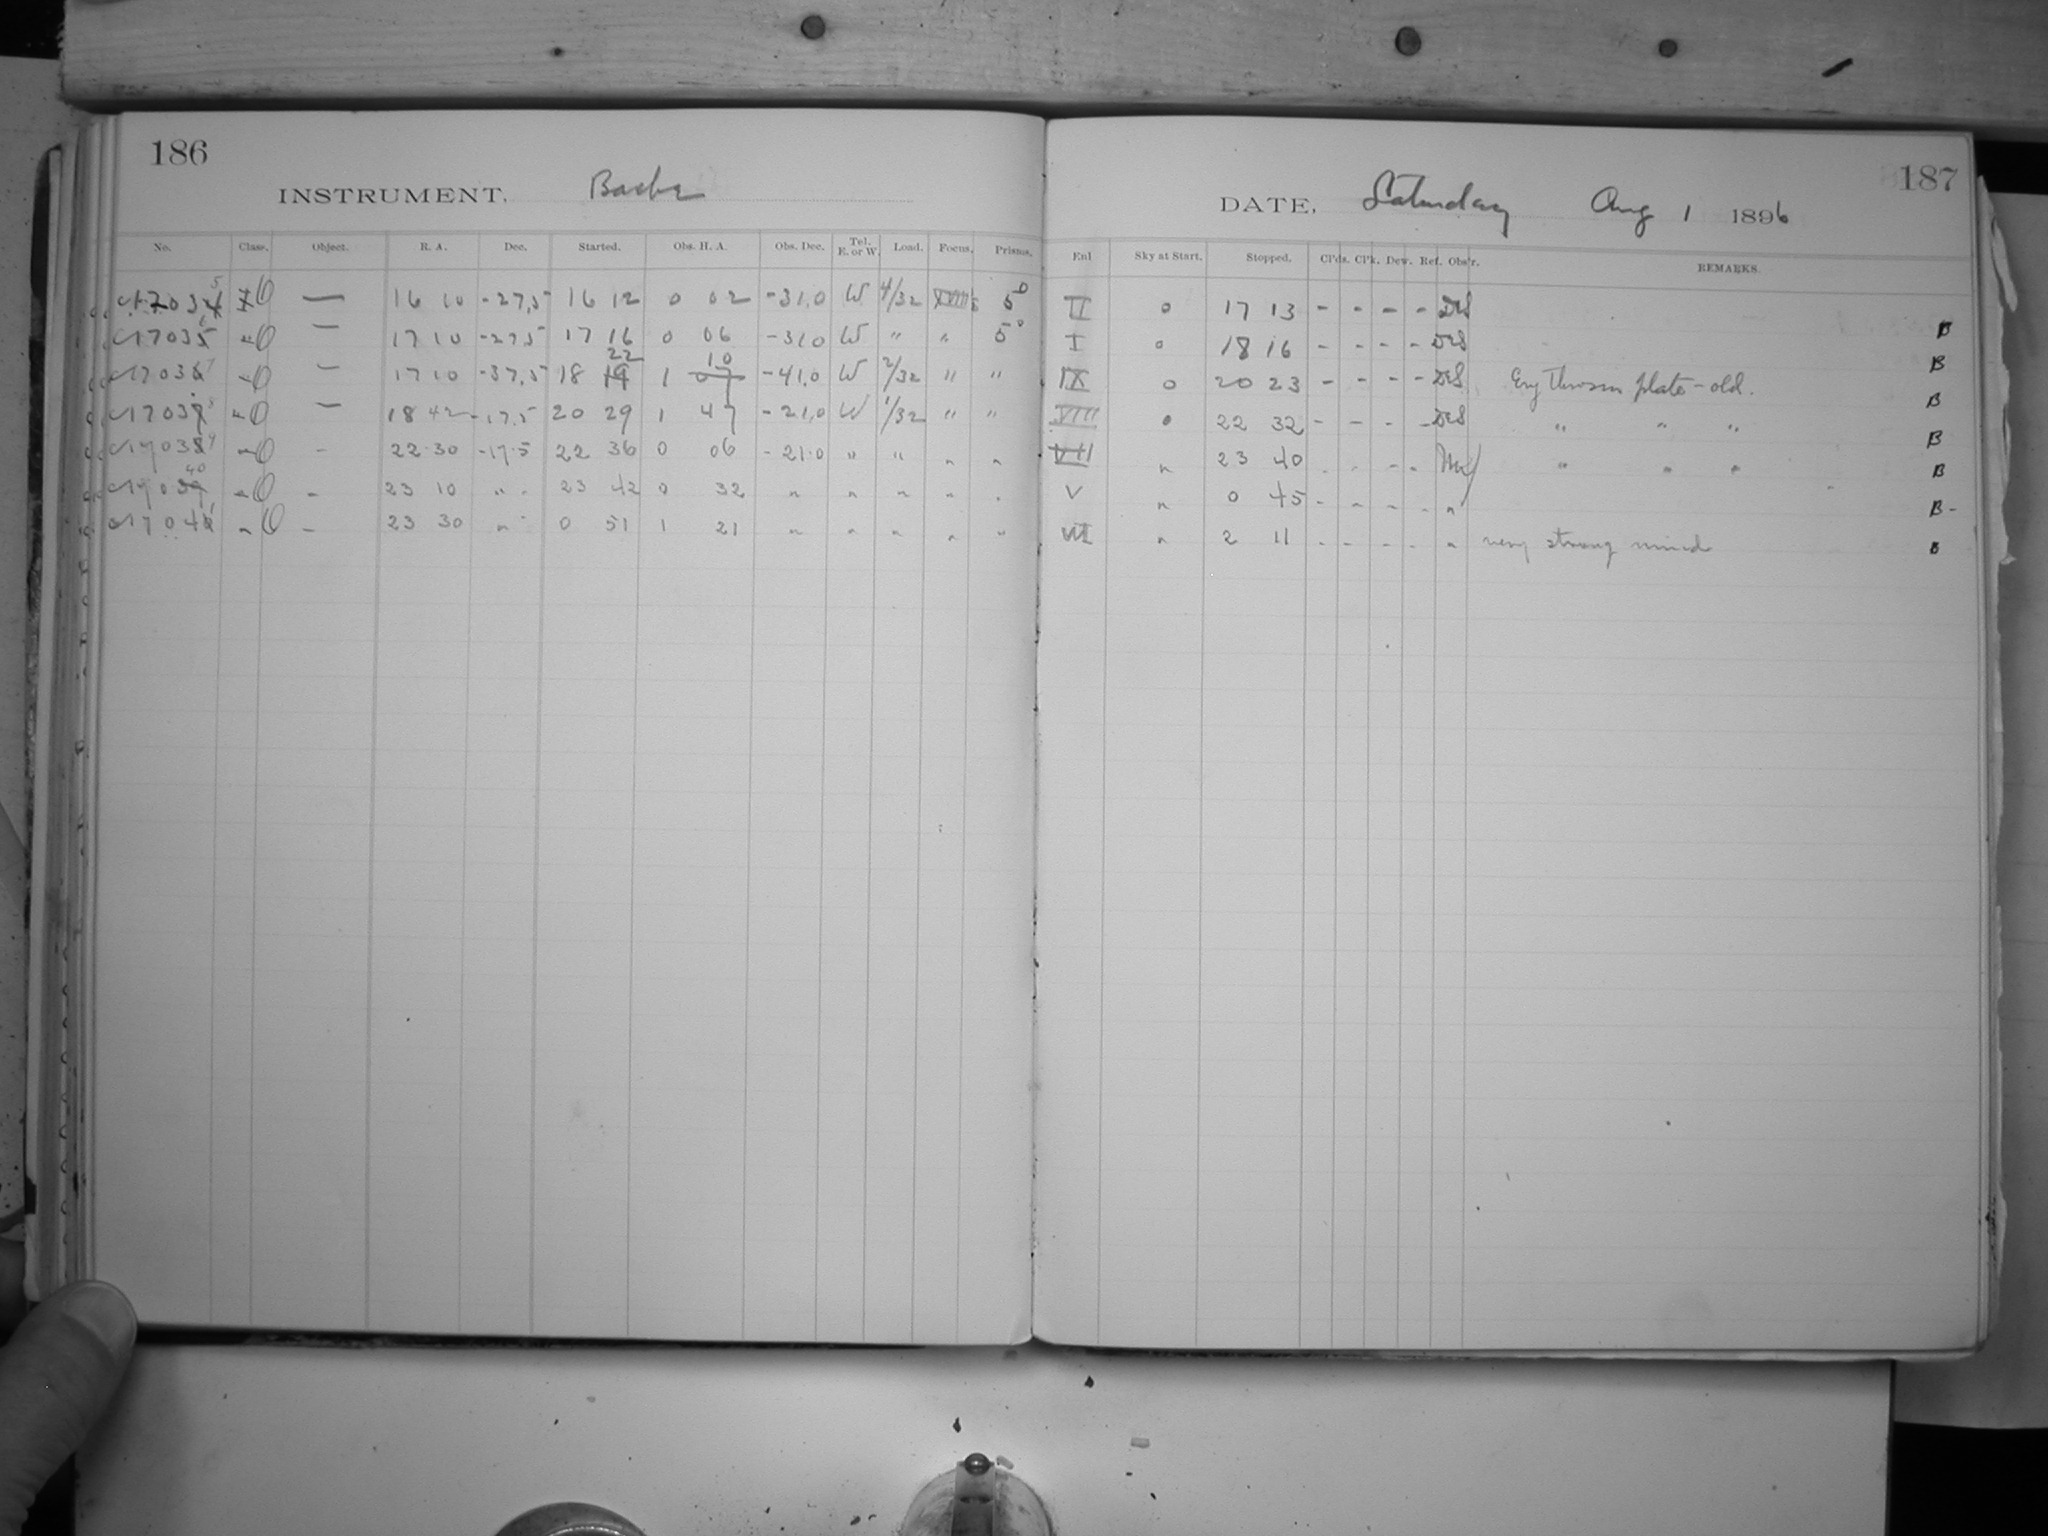 186
INSTRUMENT. Bache
No. Class. Object. R. A. Dec. Started. Obs. H. A. Obs. Dec. Tel. E. or W. Load. Focus. Prisms.
— 16 10 -27,5 16 12 0 02 -31,0 W 4/32 5°
— 17 10 -27,5 17 16 0 06 -31,0 W " " 5°
— 17 10 -37,5 18 22 1 10 -41,0 W 2/32 " "
— 18 42 -17,5 20 29 1 47 -21,0 W 1/32 " "
- 22 30 -17.5 22 36 0 06 -21.0 " " " "
- 23 10 " 23 42 0 32 " " " " "
- 23 30 " 0 51 1 21 " " " " "
187
DATE, Saturday Aug 1 1896
Enl Sky at Start. Stopped. Cl'ds. Cl'k. Dew. Ref. Obs'r. REMARKS.
II 0 17 13 - - - - B
I 0 18 16 - - - - B
IX 0 20 23 - - - - Erythrosin plate - old. B
VIII 0 22 32 - - - - " " " B
VII " 23 40 - - - - " " " B
V " 0 45 - - - - " B -
VII " 2 11 - - - - " very strong wind B